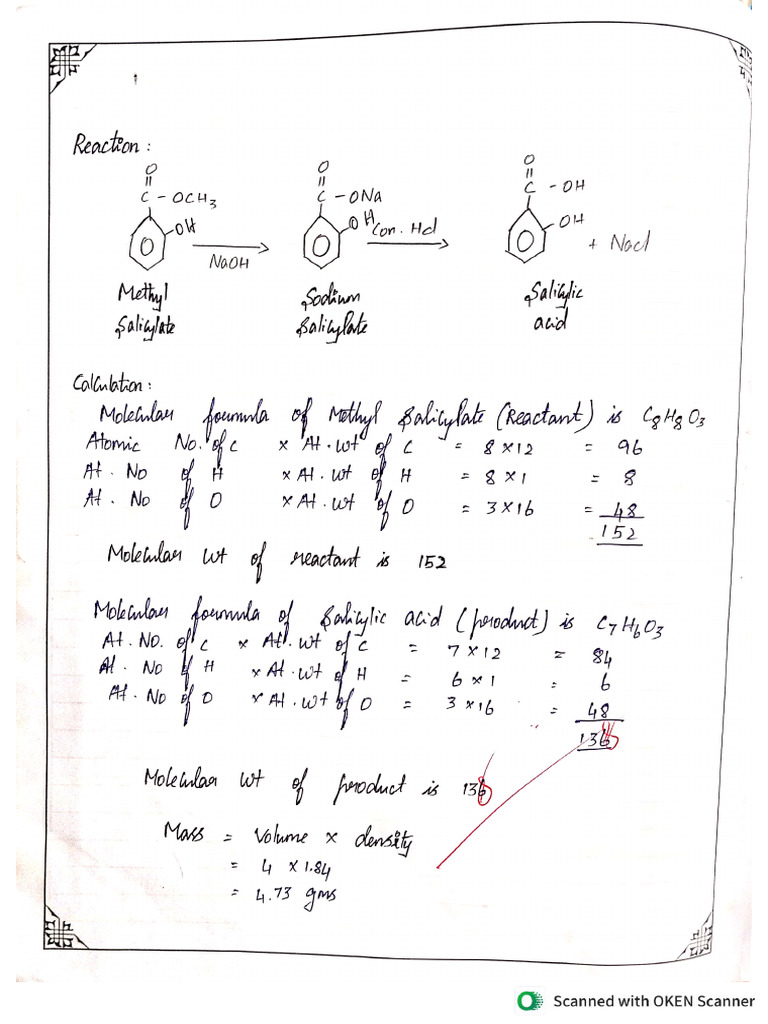 Reaction :
O
||
C - OCH3
OH
NaOH
Methyl
Salicylate
O
||
C - ONa
OH
Con. Hcl
Sodium
Salicylate
O
||
C - OH
OH
+ Nacl
Salicylic
acid
Calculation :
Molecular formula of Methyl Salicylate (Reactant) is C8H8O3
Atomic No. of C × At. wt of C = 8 × 12 = 96
At. No of H × At. wt of H = 8 × 1 = 8
At. No of O × At. wt of O = 3 × 16 = 48
152
Molecular wt of reactant is 152
Molecular formula of Salicylic acid (product) is C7H6O3
At. No. of C × At. wt of C = 7 × 12 = 84
At. No of H × At. wt of H = 6 × 1 = 6
At. No of O × At. wt of O = 3 × 16 = 48
136
Molecular wt of product is 136
Mass = Volume × density
= 4 × 1.84
= 4.73 gms
Scanned with OKEN Scanner